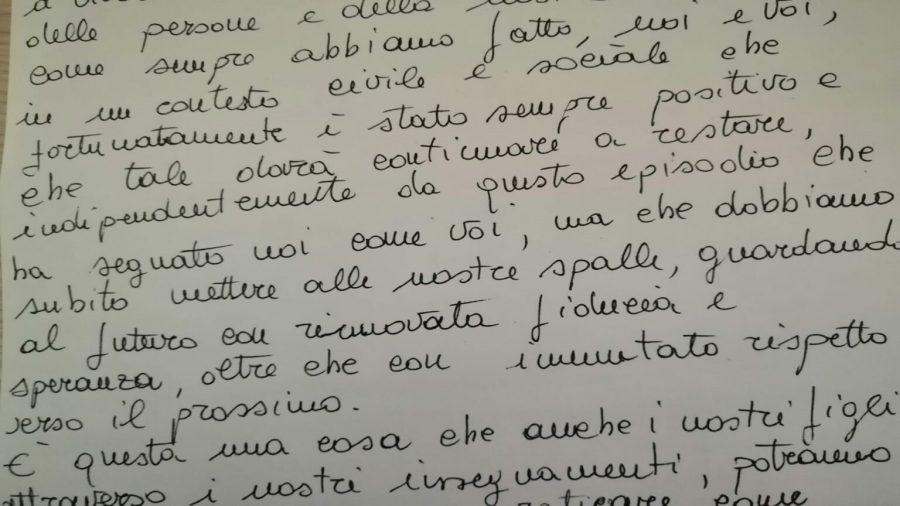 delle persone e della
come sempre abbiamo fatto, noi e voi,
in un contesto civile e sociale che
fortunatamente è stato sempre positivo e
che tale dovrà continuare a restare,
indipendentemente da questo episodio che
ha segnato noi come voi, ma che dobbiamo
subito mettere alle nostre spalle, guardando
al futuro con rinnovata fiducia e
speranza, oltre che con immutato rispetto
verso il prossimo.
È questa una cosa che anche i nostri figli
attraverso i nostri insegnamenti, potranno
come